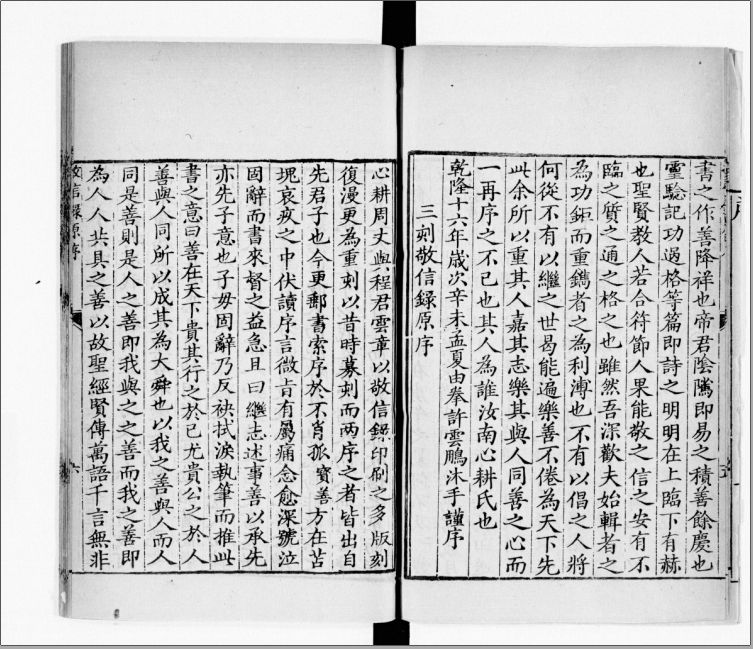 書之作善降祥也帝君陰隲即易之積善餘慶也
靈驗記功過格等篇即詩之明明在上臨下有赫
也聖賢教人若合符節人果能敬之信之安有不
臨之質之通之格之也雖然吾深歎夫始輯者之
為功鉅而重鐫者之為利溥也不有以倡之人將
何從不有以繼之世易能遍樂善不倦為天下先
此余所以重其人嘉其志樂其與人同善之心而
一再序之不已也其人為誰汝南心耕氏也
乾隆十六年歲次辛未孟夏由拳許雲鵬沐手謹序
三刻敬信錄原序
心耕周丈與程君雲章以敬信錄印刷之多版刻
復漫更為重刻以昔時募刻而兩序之者皆出自
先君子也今更郵書索序於不肖孤寶善方在苦
堁哀疚之中伏讀序言微旨有屬痛念愈深號泣
固辭而書來督之益急且曰繼志述事善以承先
亦先子意也子毋固辭乃反袂拭淚執筆而推此
書之意曰善在天下貴其行之於已尤貴公之於人
善與人同所以成其為大舜也以我之善與人而人
同是善則是人之善即我與之之善而我之善即
為人人共具之善以故聖經賢傳萬語千言無非
敬信錄原序
六